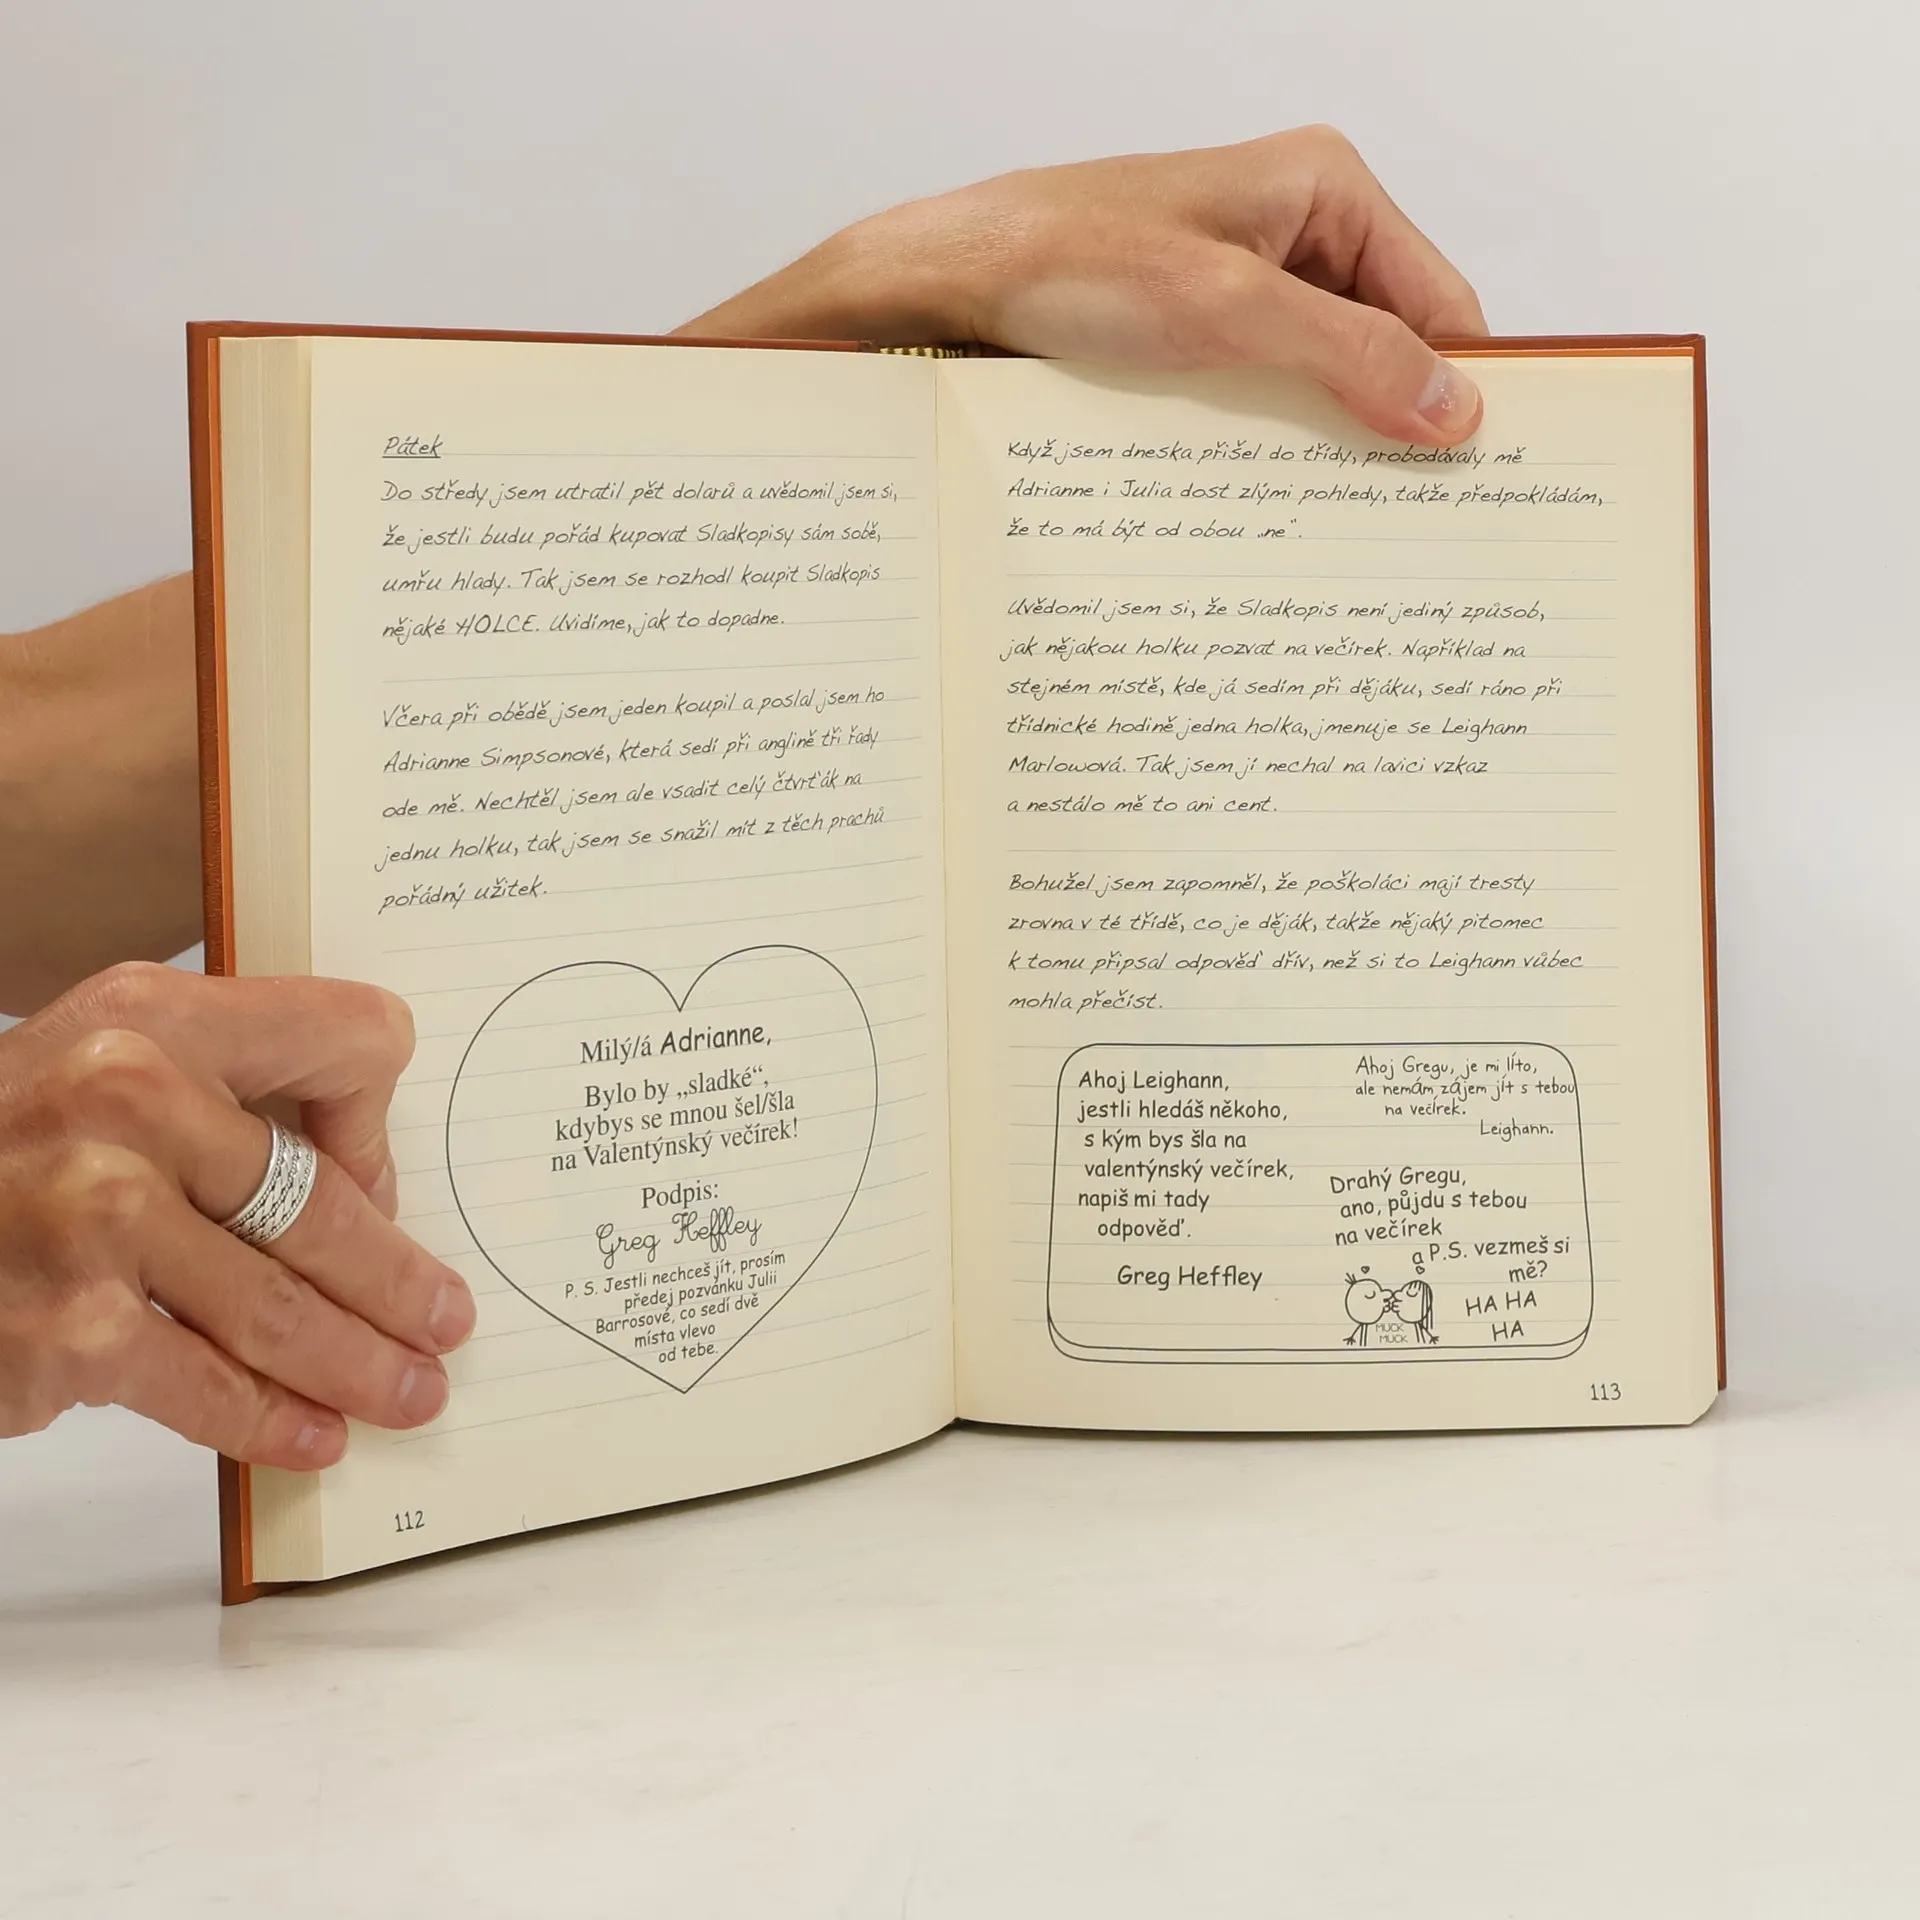 Pátek
Do středy jsem utratil pět dolarů a uvědomil jsem si,
že jestli budu pořád kupovat Sladkopisy sám sobě,
umřu hlady. Tak jsem se rozhodl koupit Sladkopis
nějaké HOLCE. Uvidíme, jak to dopadne.
Včera při obědě jsem jeden koupil a poslal jsem ho
Adrianne Simpsonové, která sedí při anglině tři řady
ode mě. Nechtěl jsem ale vsadit celý čtvrťák na
jednu holku, tak jsem se snažil mít z těch prachů
pořádný užitek.
Milý/á Adrianne,
Bylo by „sladké“,
kdybys se mnou šel/šla
na Valentýnský večírek!
Podpis:
Greg Heffley
P. S. Jestli nechceš jít, prosím
předej pozvánku Julii
Barrosové, co sedí dvě
místa vlevo
od tebe.
112
Když jsem dneska přišel do třídy, probodávaly mě
Adrianne i Julia dost zlými pohledy, takže předpokládám,
že to má být od obou „ne“.
Uvědomil jsem si, že Sladkopis není jediný způsob,
jak nějakou holku pozvat na večírek. Například na
stejném místě, kde já sedím při dějáku, sedí ráno při
třídnické hodině jedna holka, jmenuje se Leighann
Marlowová. Tak jsem jí nechal na lavici vzkaz
a nestálo mě to ani cent.
Bohužel jsem zapomněl, že poškoláci mají tresty
zrovna v té třídě, co je děják, takže nějaký pitomec
k tomu připsal odpověď dřív, než si to Leighann vůbec
mohla přečíst.
Ahoj Leighann,
jestli hledáš někoho,
s kým bys šla na
valentýnský večírek,
napiš mi tady
odpověď.
Greg Heffley
Ahoj Gregu, je mi líto,
ale nemám zájem jít s tebou
na večírek.
Leighann.
Drahý Gregu,
ano, půjdu s tebou
na večírek
a P.S. vezmeš si
mě?
HA HA
HA
MUCK
MUCK
113